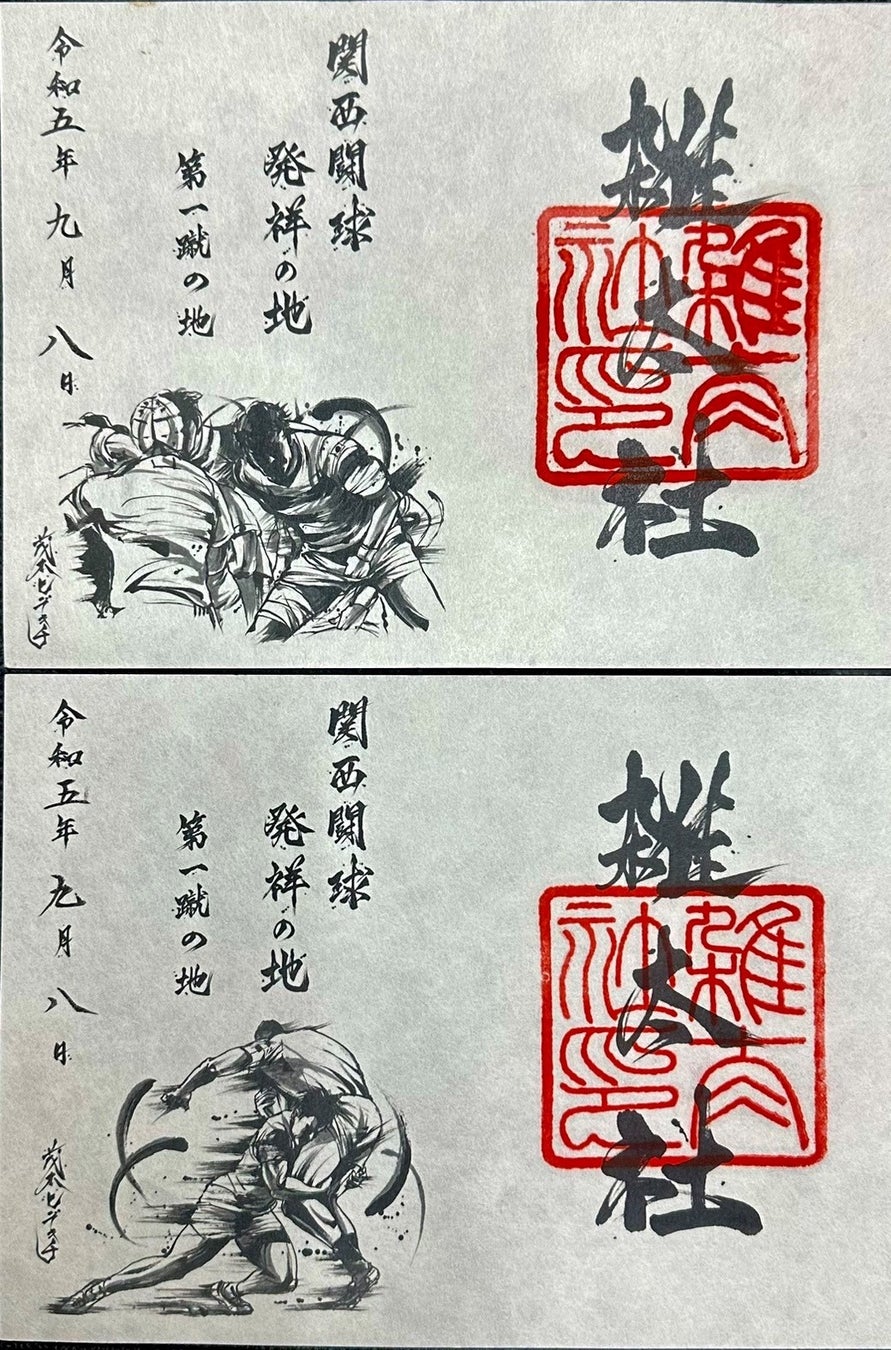 雑太社
雜太社印
関西闘球
発祥の地
第一蹴の地
令和五年九月八日
茂本ヒデキチ
雑太社
雜太社印
関西闘球
発祥の地
第一蹴の地
令和五年九月八日
茂本ヒデキチ